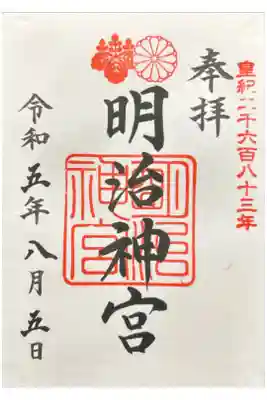 皇紀二千六百八十三年
奉拝
明治神宮
明治神宮
令和五年八月五日